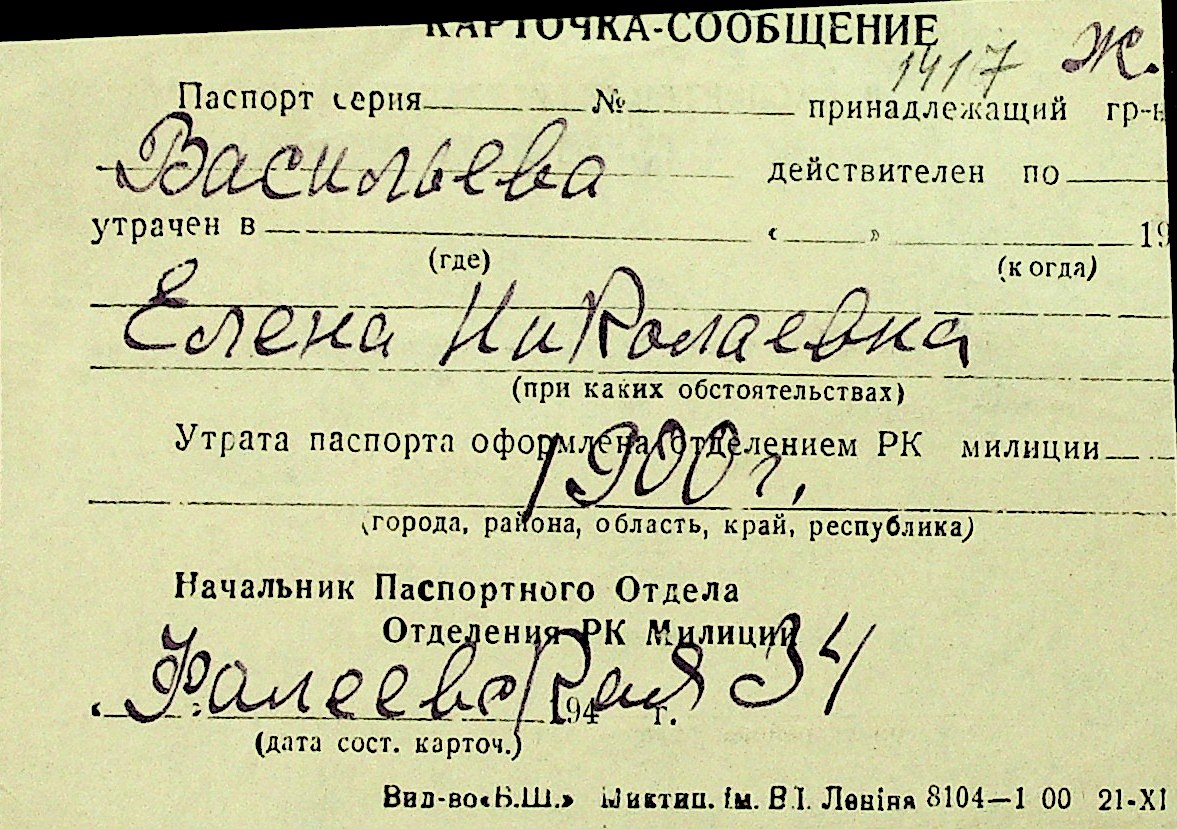 КАРТОЧКА-СООБЩЕНИЕ
1417 Ж.
Паспорт серия № принадлежащий гр-н
Васильева действителен по
утрачен в « » 19
(где) (когда)
Елена Николаевна
(при каких обстоятельствах)
Утрата паспорта оформлена отделением РК милиции
1900 г.
(города, района, область, край, республика)
Начальник Паспортного Отдела
Отделения РК Милиции
Фалеевская 34
194 г.
(дата сост. карточ.)
Вид-во «Б.Ш.» Миктип. Ім. В.І. Леніна 8104—1 00 21-XI